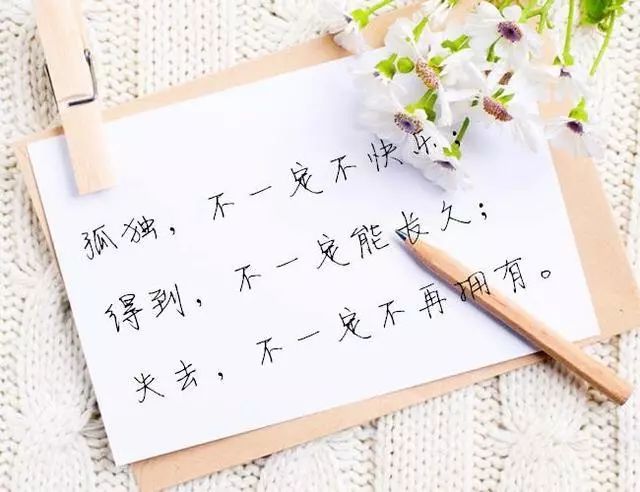 孤独，不一定不快乐；
得到，不一定能长久；
失去，不一定不再拥有。